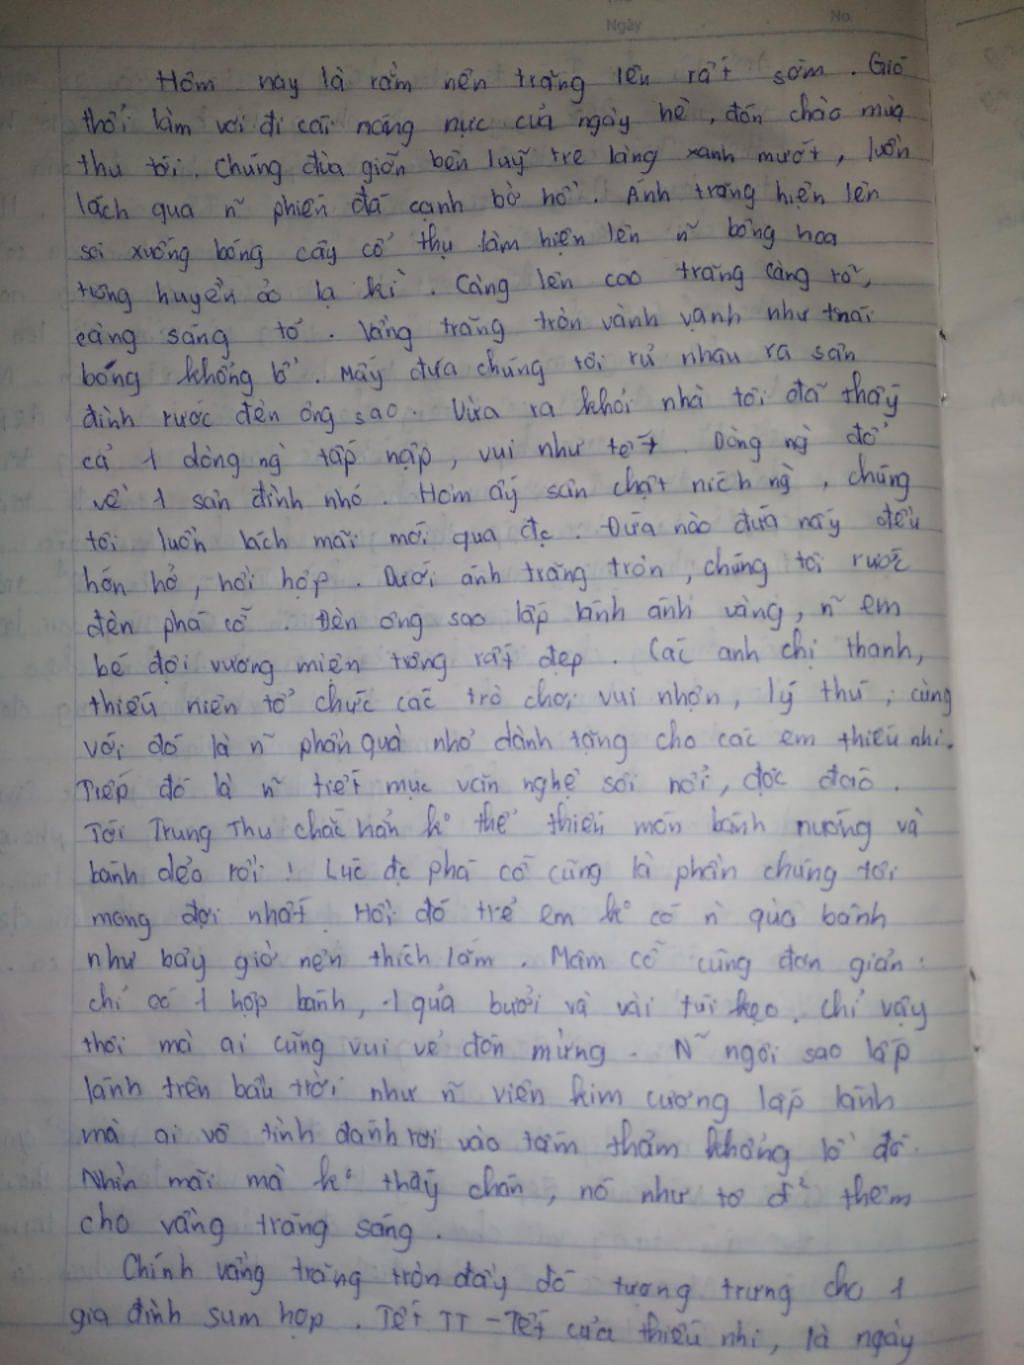 Ngày
No.
Hôm nay là rằm nên trăng lên rất sớm. Gió
thổi làm vơi đi cái nóng nực của ngày hè, đón chào mùa
thu tới. Chúng đùa giỡn bên luỹ tre làng xanh mướt, luồn
lách qua n~ phiến đá cạnh bờ hồ. Ánh trăng hiện lên
soi xuống bóng cây cổ thụ làm hiện lên n~ bông hoa
trông huyền ảo lạ kì. Càng lên cao trăng càng rõ,
càng sáng tỏ. Vầng trăng tròn vành vạnh như trái
bóng khổng lồ. Mấy đứa chúng tôi rủ nhau ra sân
đình rước đèn ông sao. Vừa ra khỏi nhà tôi đã thấy
cả 1 dòng ng` tấp nập, vui như tết. Dòng ng` đổ
về 1 sân đình nhỏ. Hôm ấy sân chật ních ng`, chúng
tôi luồn lách mãi mới qua đc. Đứa nào đứa nấy đều
hớn hở, hồi hộp. Dưới ánh trăng tròn, chúng tôi rước
đèn phá cỗ. Đèn ông sao lấp lánh ánh vàng, n~ em
bé đội vương miện trông rất đẹp. Các anh chị thanh,
thiếu niên tổ chức các trò chơi vui nhộn, lý thú, cùng
với đó là n~ phần quà nhỏ dành tặng cho các em thiếu nhi.
Tiếp đó là n~ tiết mục văn nghệ sôi nổi, độc đáo.
Tới Trung Thu chắc hẳn k° thể thiếu món bánh nướng và
bánh dẻo rồi! Lúc đc phá cỗ cũng là phần chúng tôi
mong đợi nhất. Hồi đó trẻ em k° có n` quà bánh
như bây giờ nên thích lắm. Mâm cỗ cũng đơn giản:
chỉ có 1 hộp bánh, 1 quả bưởi và vài túi kẹo. Chỉ vậy
thôi mà ai cũng vui vẻ đón mừng. N~ ngôi sao lấp
lánh trên bầu trời như n~ viên kim cương lấp lánh
mà ai vô tình đánh rơi vào tấm thảm khổng lồ đó.
Nhìn mãi mà k° thấy chán, nó như tô đ² thêm
cho vầng trăng sáng.
Chính vầng trăng tròn đầy đó tượng trưng cho 1
gia đình sum họp. Tết TT - Tết của thiếu nhi, là ngày